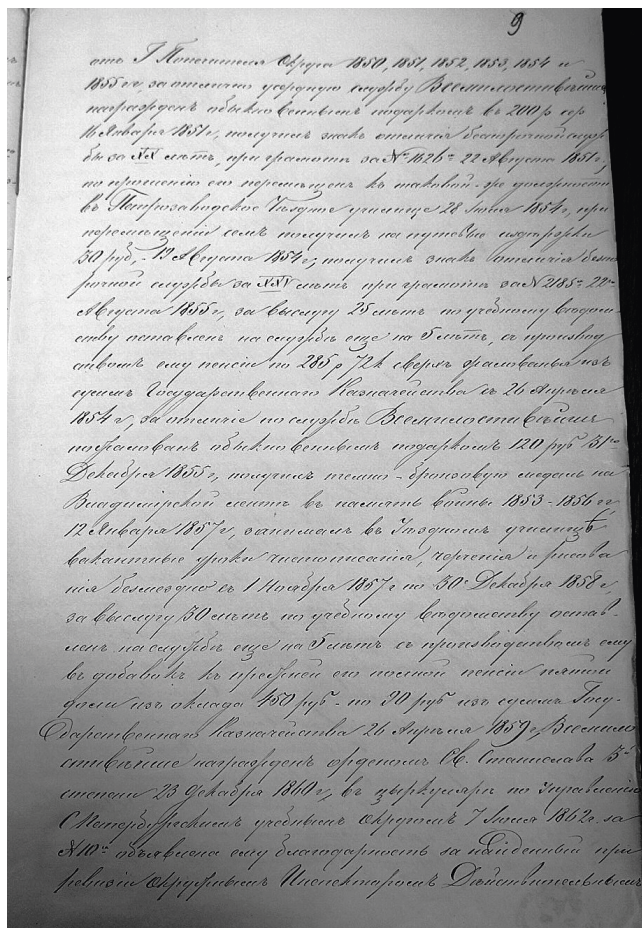 9
отъ Г Попечителя Округа 1850, 1851, 1852, 1853, 1854 и
1855 гг, за отлично усердную службу Всемилостивѣйше
награжденъ обыкновеннымъ подаркомъ въ 200 р сер
16 Января 1851 г, получилъ знакъ отличія безпорочной служ
бы за XX лѣтъ, при грамотѣ за № 1626ъ 22 Августа 1851 г,
по прошенію его перемѣщенъ къ таковой-же должности
въ Петрозаводское Уѣздное училище 28 Іюля 1854 г, при
перемѣщеніи семъ получилъ на путевыя издержки
50 руб, - 19 Августа 1854 г, получилъ знакъ отличія безпо
рочной службы за XXV лѣтъ при грамотѣ за № 2185ъ 22го
Августа 1855 г, за выслугу 25 лѣтъ по учебному вѣдом
ству оставленъ на службѣ еще на 5 лѣтъ, съ производ
ствомъ ему пенсіи по 285 р 72 к сверхъ жалованья изъ
суммъ Государственнаго Казначейства съ 26 Апрѣля
1854 г, за отличіе по службѣ Всемилостивѣйше
пожалованъ обыкновеннымъ подаркомъ 120 руб 31го
Декабря 1855 г, получилъ темно-бронзовую медаль на
Владимірской лентѣ въ память войны 1853-1856 гг
12 Января 1857 г, занималъ въ Уѣздномъ училищѣ
вакантные уроки чистописанія, черченія и рисова
нія безмездно съ 1 Ноября 1857 г по 30е Декабря 1858 г,
за выслугу 30 лѣтъ по учебному вѣдомству остав-
ленъ на службѣ еще на 5 лѣтъ съ производствомъ ему
въ добавокъ къ прежней его полной пенсіи пятой
доли изъ оклада 450 руб - по 90 руб изъ суммъ Госу-
дарственнаго Казначейства 26 Апрѣля 1859 г, Всемило
стивѣйше награжденъ орденомъ Св. Станислава 3й
степени 23 Декабря 1860 г, въ циркулярѣ по Управленію
С Петербургскимъ учебнымъ округомъ 7 Іюля 1862 г. за
№ 10ъ объявлена ему благодарность за найденный при
ревизіи Окружнымъ Инспекторомъ Дѣйствительнымъ